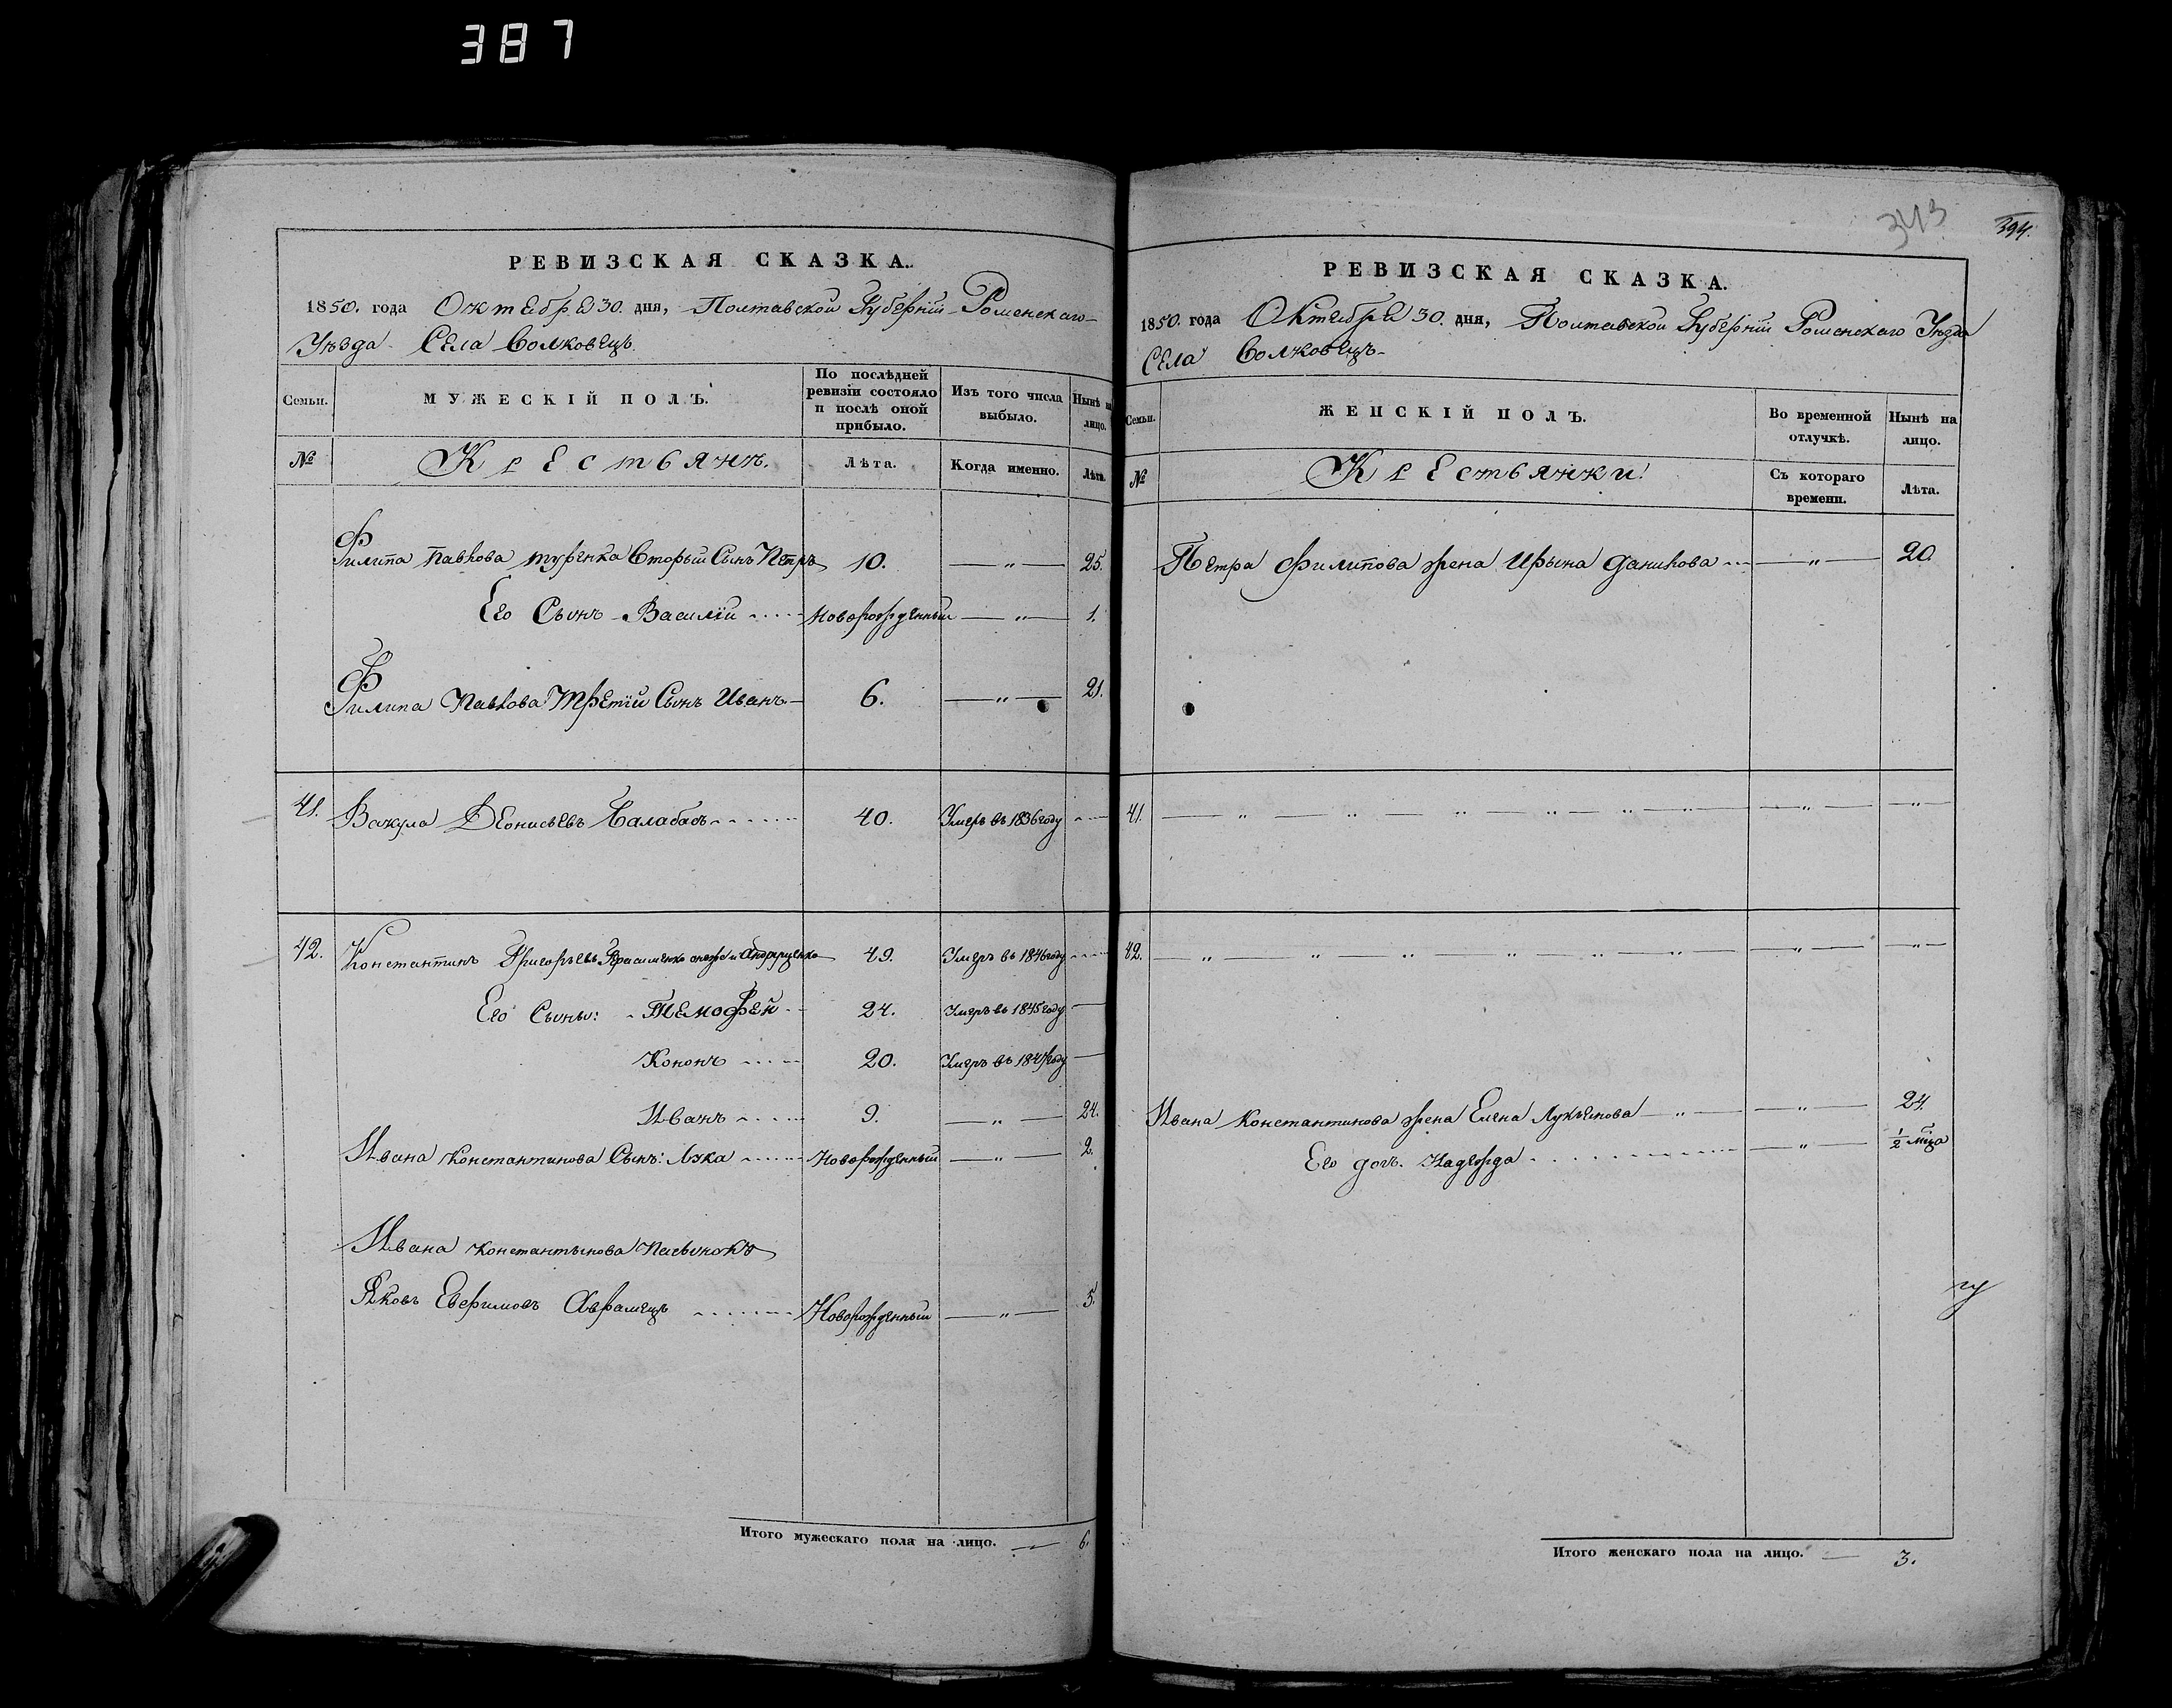 387
РЕВИЗСКАЯ СКАЗКА.
1850. года Октебря 30. дня, Полтавской Губерніи Роменскаго
Уѣзда Села Волковецъ
Семьи. МУЖЕСКІЙ ПОЛЪ. По послѣдней ревизіи состояло и послѣ оной прибыло. Изъ того числа выбыло. Нынѣ на лицо.
№ Крестьянъ. Лѣта. Когда именно. Лѣта.
Филипа Павлова Туренка Вторый Сынъ Петръ 10. — „ — 25.
Его Сынъ Василій Новорожденный — „ — 1.
Филипа Павлова Третій Сынъ Иванъ 6. — „ — 21.
41. Вакула Деонисьевъ Балабасъ 40. Умеръ въ 1836 году
42. Константинъ Григорьевъ Герасименко онъже и Андрущенко 49. Умеръ въ 1846 году
Его Сыны: Темофей 24. Умеръ въ 1845 году
Кононъ 20. Умеръ въ году
Иванъ 9. — „ — 24.
Ивана Константинова Сынъ: Лука Новорожденный — „ — 2.
Ивана Константынова Пасынокъ
Яковъ Евфимовъ Аврамецъ Новорожденный — „ — 5.
Итого мужескаго пола на лицо. — 6.
343
394.
РЕВИЗСКАЯ СКАЗКА.
1850. года Октебря 30. дня, Полтавской Губерніи Роменскаго Уѣзда
Села Волковецъ
Семьи. ЖЕНСКІЙ ПОЛЪ. Во временной отлучкѣ. Нынѣ на лицо.
№ Крестьянки Съ котораго времени. Лѣта.
Петра Филипова жена Ирына Данилова — „ — 20.
41. — „ — „ — „ — „ — „ — „ — — „ — — „ —
42. — „ — „ — „ — „ — „ — „ — — „ — — „ —
Ивана Константинова жена Елена Лукьянова — „ — — „ — 24.
Его доч. Надежда — „ — 1/2 мца
Итого женскаго пола на лицо. — 3.